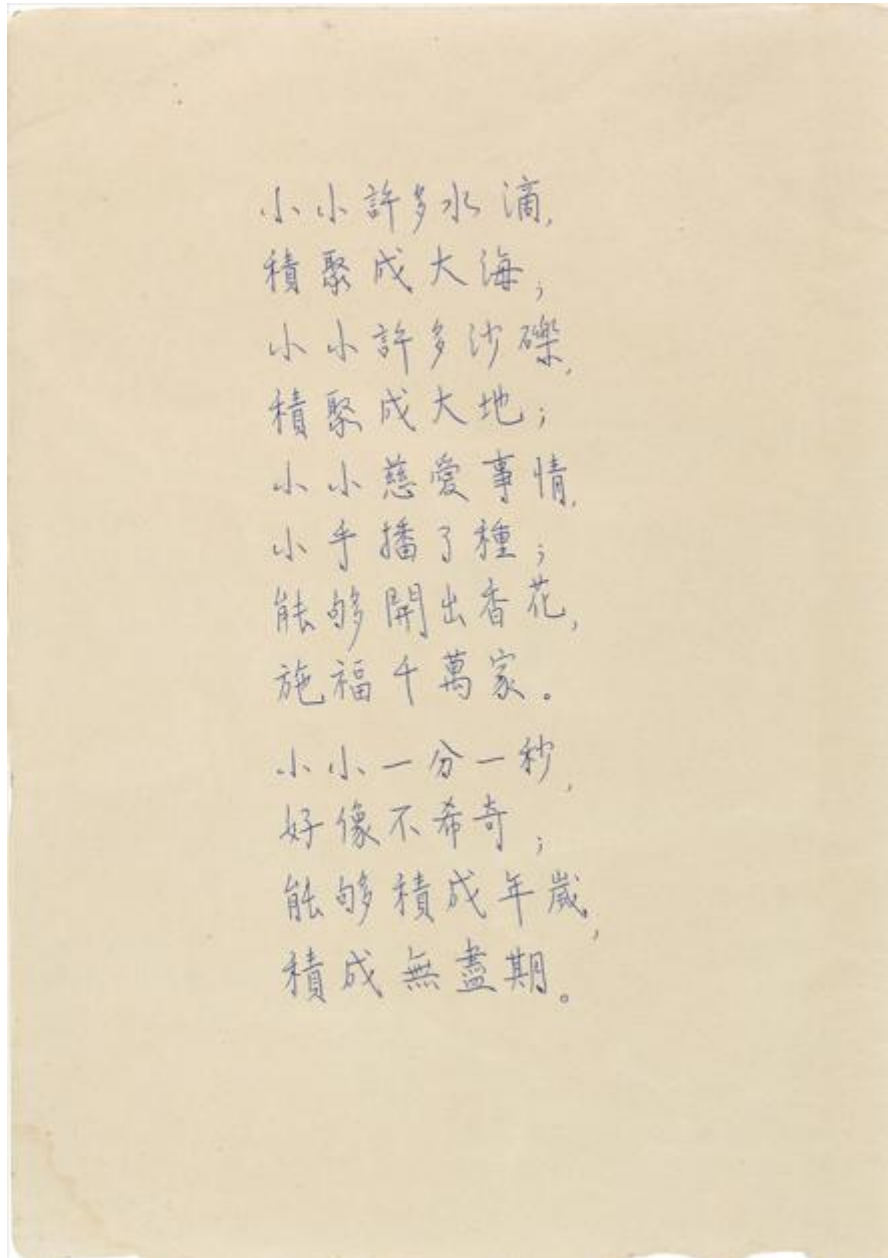 小小許多水滴,
積聚成大海;
小小許多沙礫,
積聚成大地;
小小慈愛事情,
小手播了種;
能够開出香花,
施福千萬家。
小小一分一秒,
好像不希奇;
能够積成年歲,
積成無盡期。